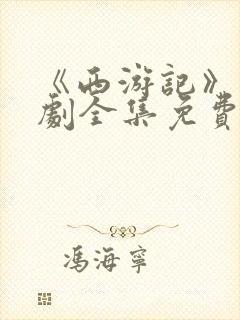 《西游記》
劇全集免費
馮海寧